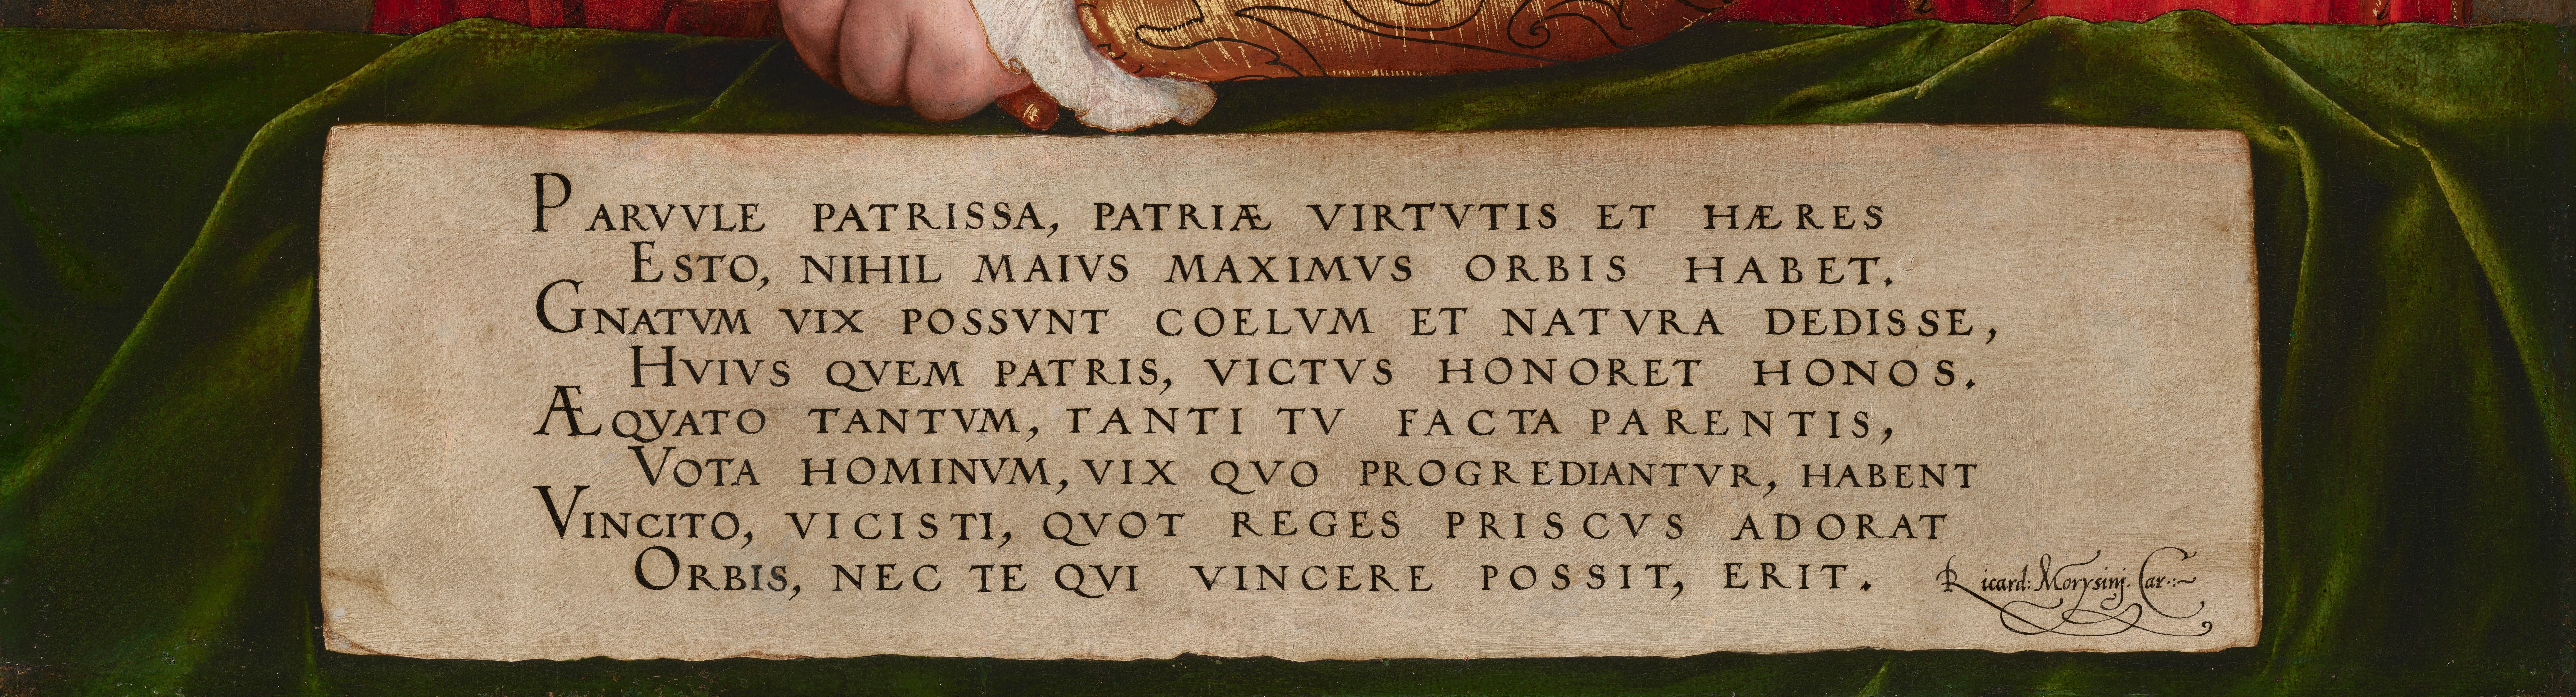 PARVVLE PATRISSA, PATRIÆ VIRTVTIS ET HÆRES
ESTO, NIHIL MAIVS MAXIMVS ORBIS HABET.
GNATVM VIX POSSVNT COELVM ET NATVRA DEDISSE,
HVIVS QVEM PATRIS, VICTVS HONORET HONOS.
ÆQVATO TANTVM, TANTI TV FACTA PARENTIS,
VOTA HOMINVM, VIX QVO PROGREDIANTVR, HABENT
VINCITO, VICISTI, QVOT REGES PRISCVS ADORAT
ORBIS, NEC TE QVI VINCERE POSSIT, ERIT.
Ricard: Morysinj. Car:~